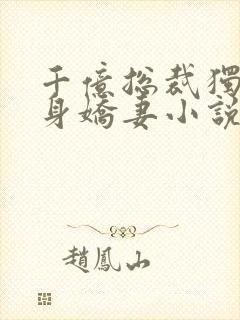 千億總裁獨
身嬌妻小說
趙鳳山